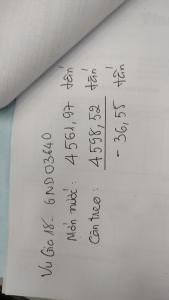 Vu Gia 18 - GND03640
Món nước: 4561,97 tấn
Cân treo: 4598,52 tấn
- 36,55 tấn